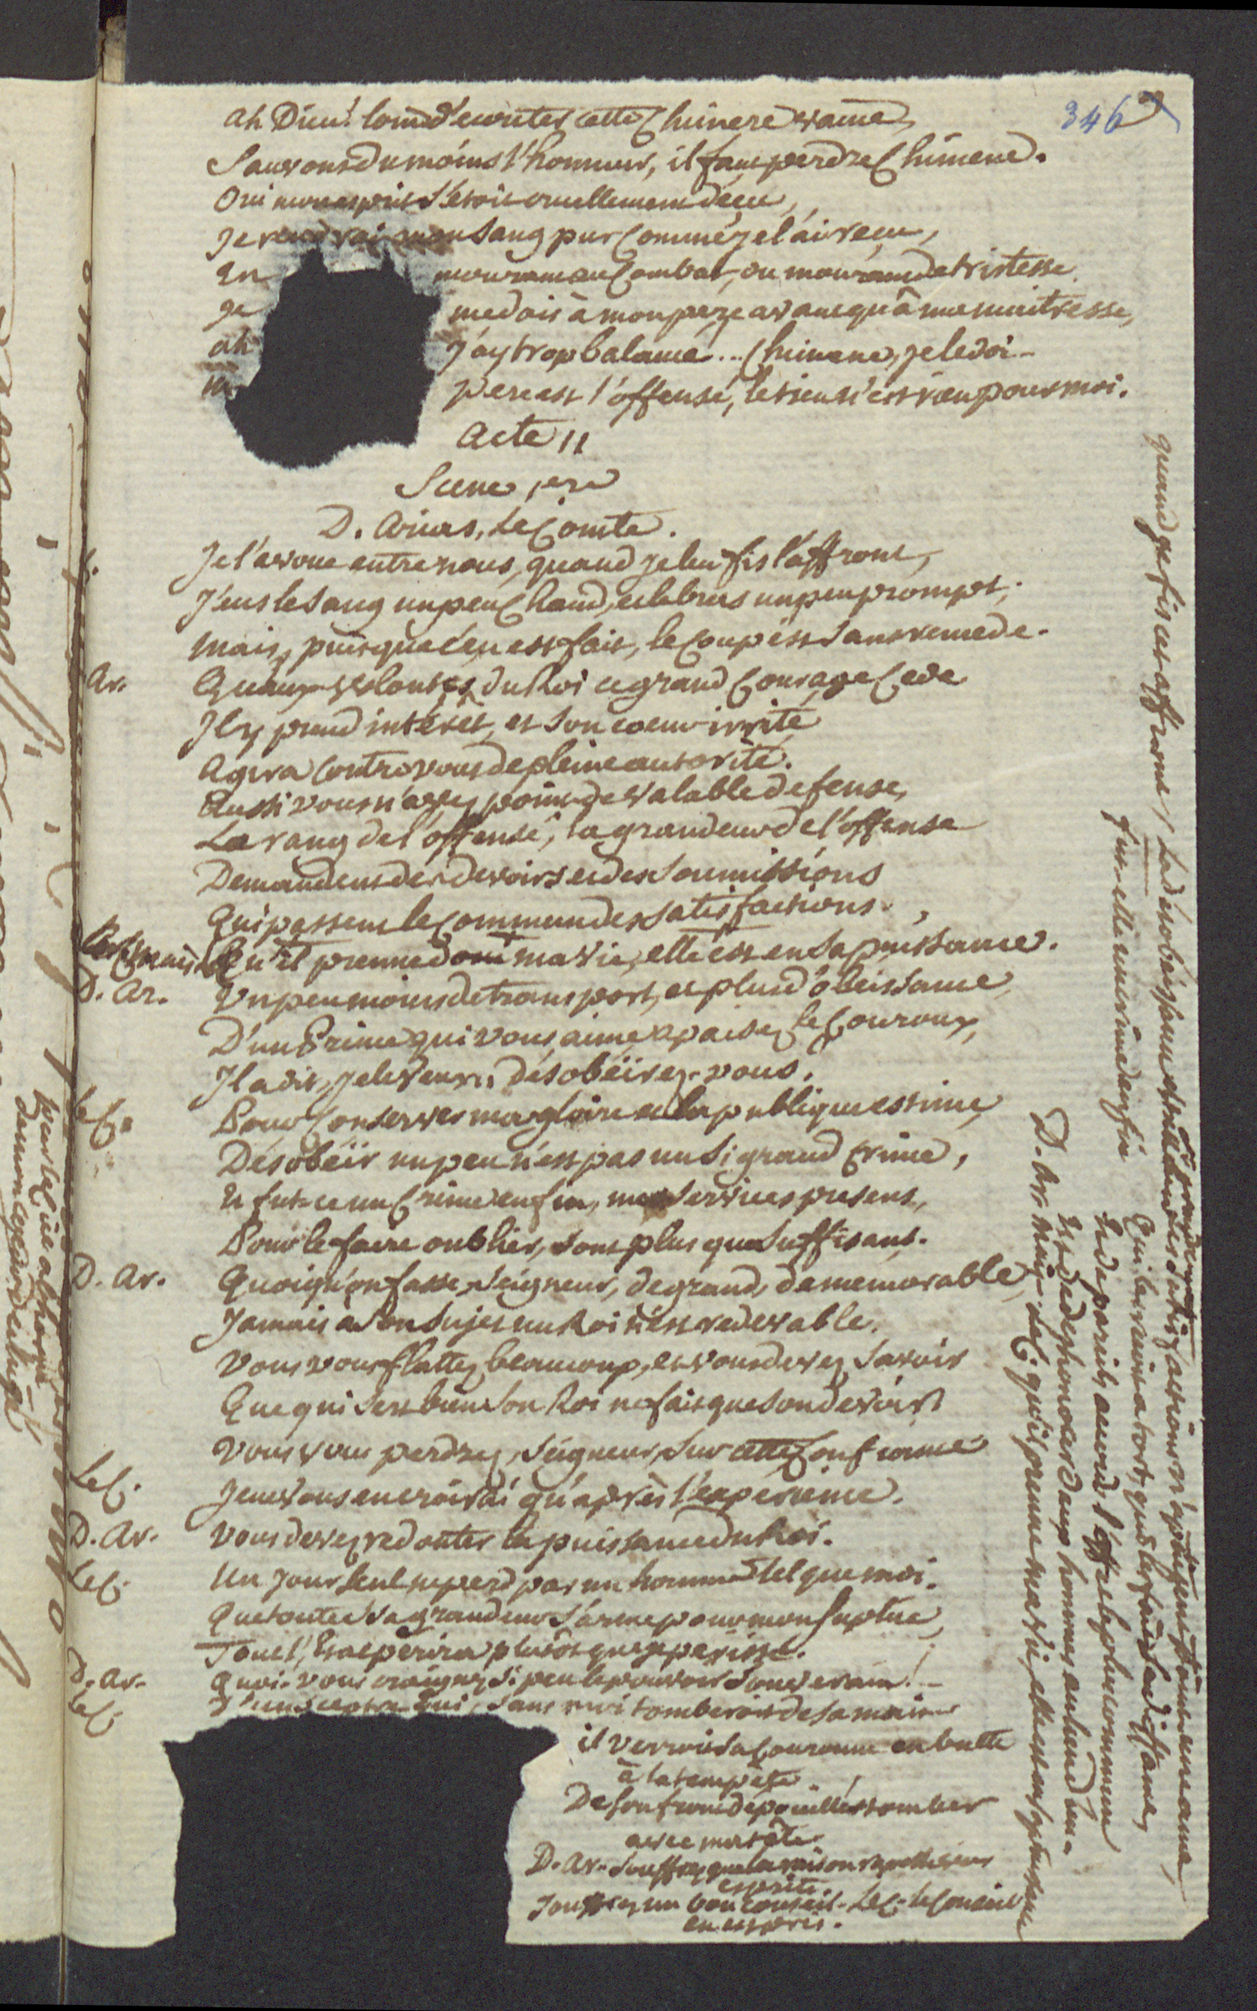 346
ah Dieu! loin d'ecouter cette Chimere vaine,
Sauvons du moins l'honneur, il faut perdre Chimene.
Oui mon esprit s'etoit cruellement déçu,
Je rendrai mon sang pur comme je l'ai reçu,
En mourant au Combat, ou mourant de tristesse
Je me dois à mon pere avant qu'à ma maitresse,
ah j'ay trop balancé... Chimene, je le doi-
pere est l'offensé, le sien n'est rien pour moi.
Acte II
Scene 1ere
D. Arias, Le Comte.
Je l'avoue entre nous, quand je lui fis l'affront,
J'eus le sang un peu Chaud, et le bras un peu prompt,
Mais, puisque c'en est fait, le Coup est sans remede.
Ar. Qu'aux volontés du Roi ce grand Courage Cede
Il y prend intérêt, et son coeur irrité
Agira contre vous de pleine autorité.
Aussi vous n'avez point de valable defense,
Le rang de l'offensé, la grandeur de l'offense
Demandent des devoirs et des soumissions
Qui passent le commun des satisfactions.
Qu'il prenne donc ma vie, elle est en sa puissance.
D. Ar. Un peu moins de transport, et plus d'obeissance,
D'un Prince qui vous aime apaisez le Couroux,
Il a dit, je le veux, désobéirez-vous,
Le C. Pour Conserver ma gloire et la publique estime,
Désobéir un peu n'est pas un si grand crime,
Et fut-ce un Crime enfin, mes services presens,
Pour le faire oublier, sont plus que suffisans.
D. Ar. Quoiqu'on fasse, Seigneur, de grand, de memorable,
Jamais à son sujet un Roi n'est redevable.
Vous vous flattez beaucoup, et vous devez savoir
Que qui sert bien son Roi ne fait que son devoir
Vous vous perdrez, Seigneur, sur cette Confiance
Le C. Je ne vous en croirai qu'après l'experience.
D. Ar. Vous devez redouter la puissance du Roi.
Le C. Un jour seul ne perd pas un homme tel que moi.
Que toute sa grandeur s'arme pour mon suplice,
Tout l'Etat perira plutôt que je perisse.
D. Ar. Quoi. vous craignez si peu le pouvoir souverain!
Le C. D'un sceptre qui, sans moi tomberoit de sa main
il verroit sa Couronne en butte
à la tempête
De son front depouillé tomber
avec ma tête.
D. Ar. Souffrez que la raison
esprits.
Souffrez un bon Conseil. Le C. le Conseil
en est pris.
quand je fis cet affront,
fut-elle un crime enfin
Qui le reçoit a tort, qui le fait se diffame,
D. Ar. Mais Le C. qu'il prenne ma vie, elle est en sa puissance